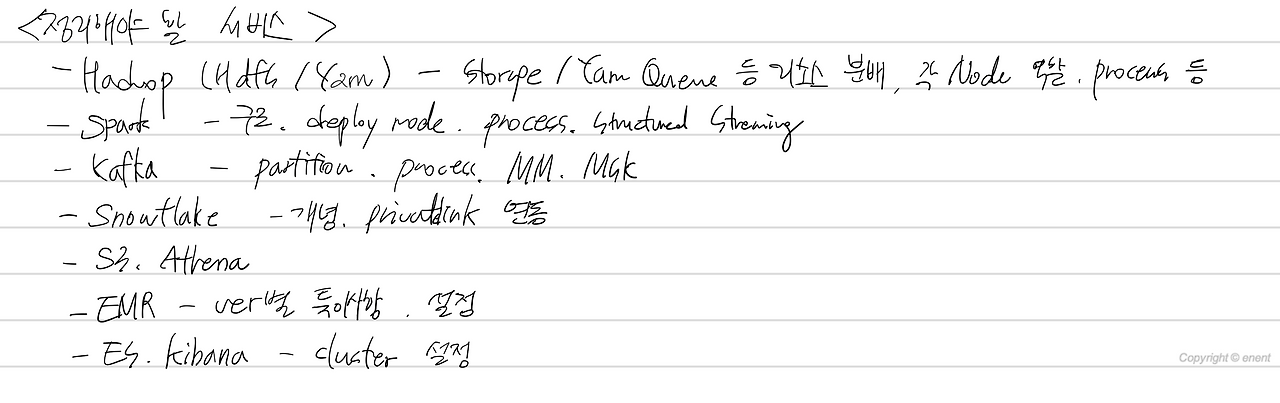 <정리해야 할 서비스>
- Hadoop (Hdfs / Yarn) - Storage / Yarn Queue 등 리소스 분배, 각 Node 역할. process 등
- Spark - 구조. deploy mode. process. Structured Streaming
- Kafka - partition. process. MM. MSK
- Snowflake - 개념. privatelink 연동
- S3. Athena
- EMR - ver별 특이사항. 설정
- ES. kibana - cluster 설정
Copyright © enent